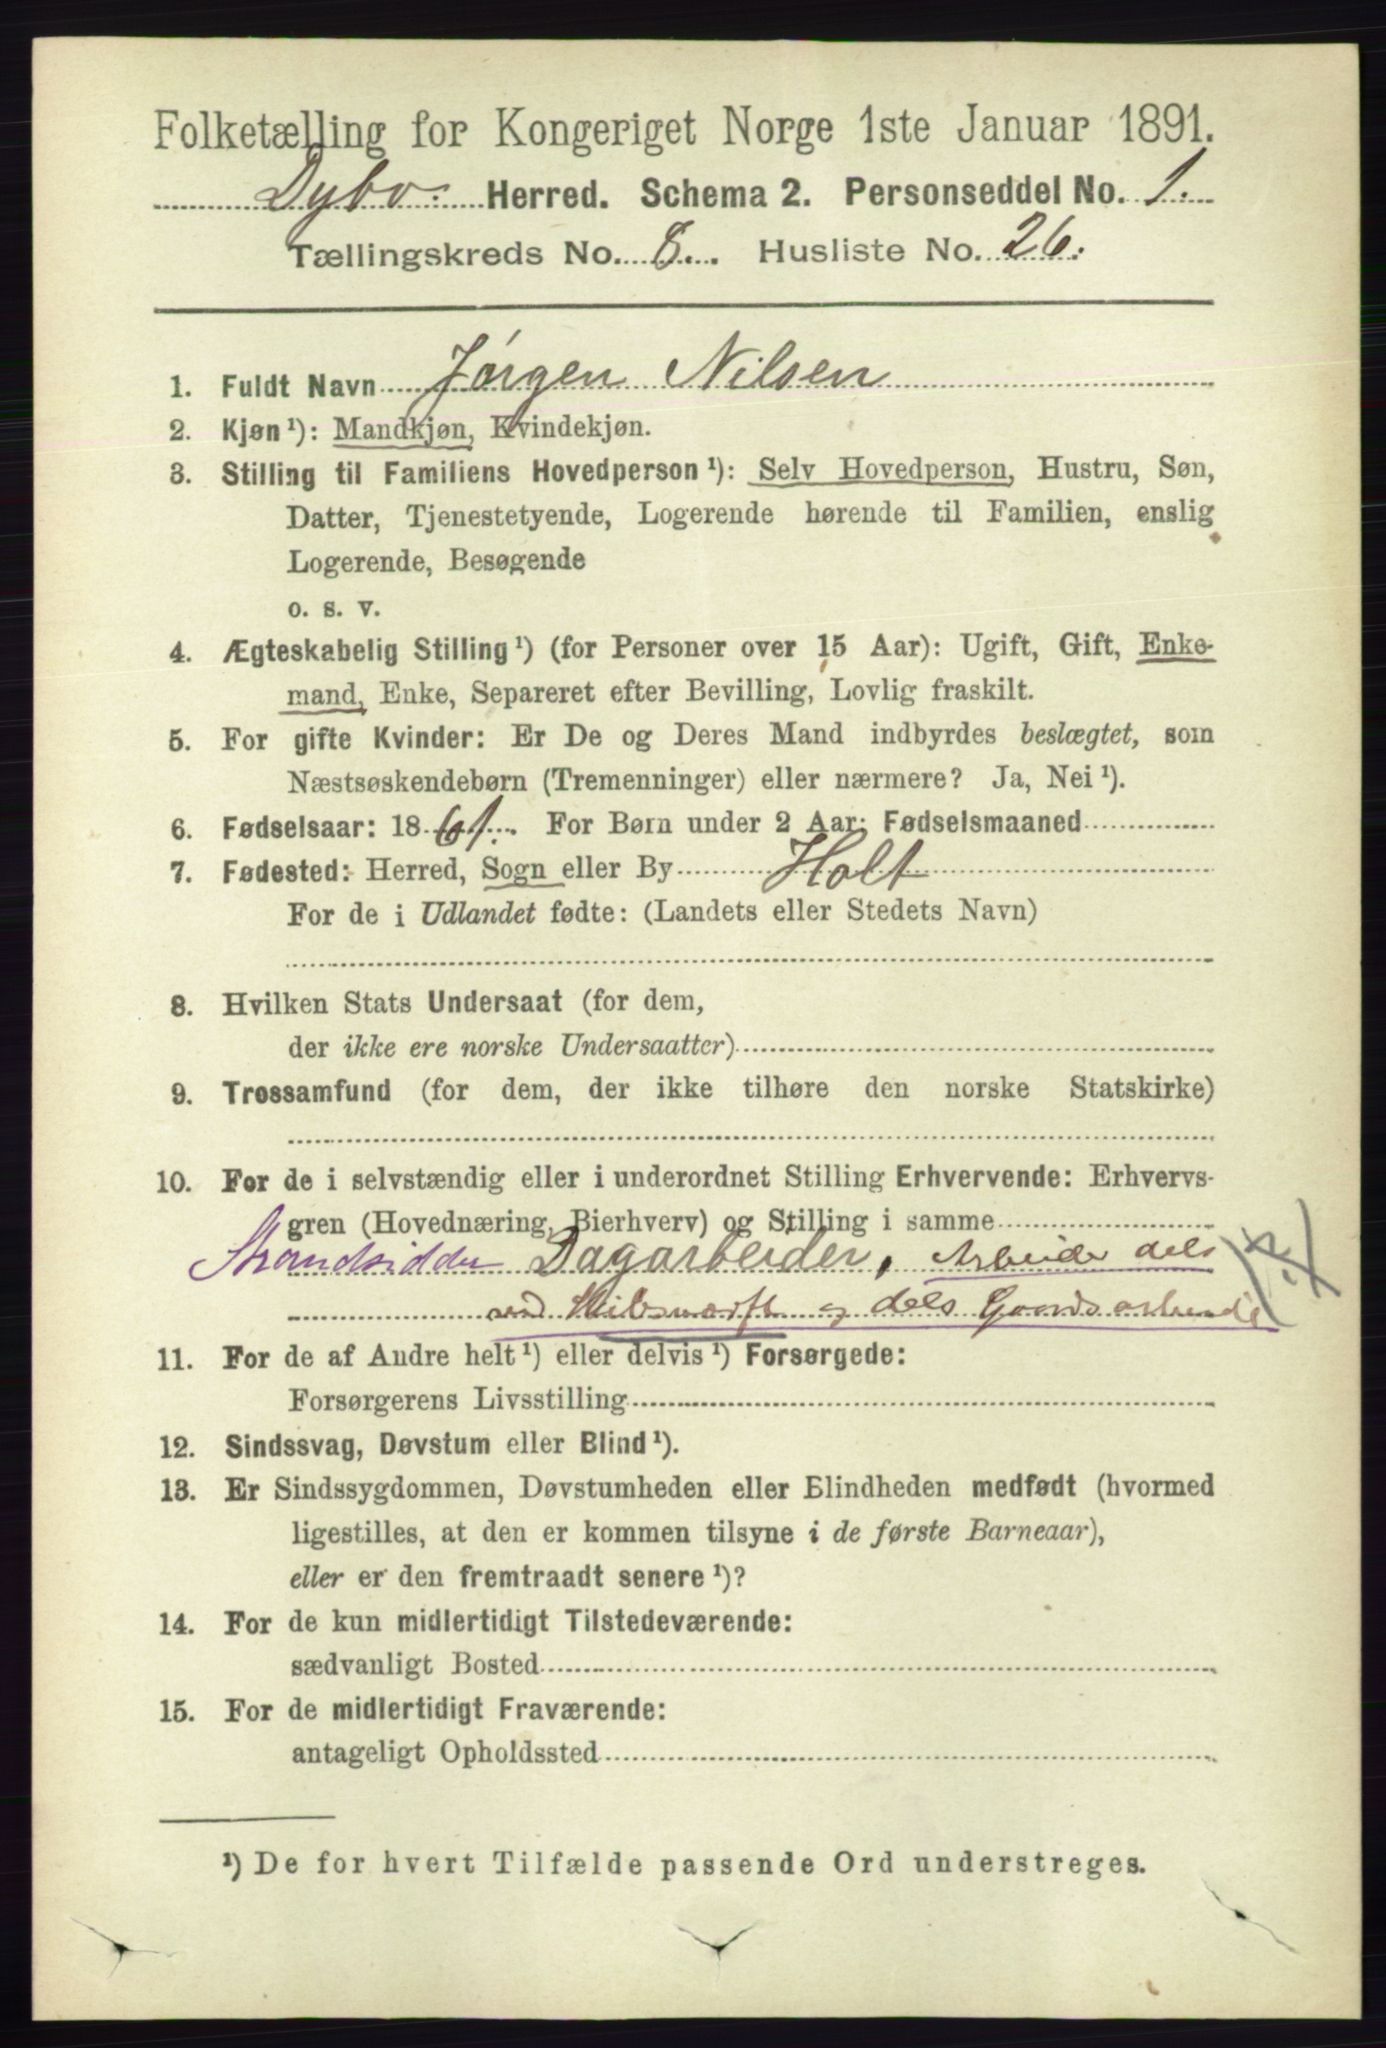 Folketælling for Kongeriget Norge 1ste Januar 1891.
Dybv. Herred. Schema 2. Personseddel No. 1.
Tællingskreds No. 8. Husliste No. 26.
1. Fuldt Navn Jørgen Nilsen
2. Kjøn¹): Mandkjøn, Kvindekjøn.
3. Stilling til Familiens Hovedperson¹): Selv Hovedperson, Hustru, Søn,
Datter, Tjenestetyende, Logerende hørende til Familien, enslig
Logerende, Besøgende
o. s. v.
4. Ægteskabelig Stilling¹) (for Personer over 15 Aar): Ugift, Gift, Enke-
mand, Enke, Separeret efter Bevilling, Lovlig fraskilt.
5. For gifte Kvinder: Er De og Deres Mand indbyrdes beslægtet, som
Næstsøskendebørn (Tremenninger) eller nærmere? Ja, Nei¹).
6. Fødselsaar: 1861. For Børn under 2 Aar: Fødselsmaaned
7. Fødested: Herred, Sogn eller By Holt
For de i Udlandet fødte: (Landets eller Stedets Navn)
8. Hvilken Stats Undersaat (for dem,
der ikke ere norske Undersaatter)
9. Trossamfund (for dem, der ikke tilhøre den norske Statskirke)
10. For de i selvstændig eller i underordnet Stilling Erhvervende: Erhvervs-
gren (Hovednæring, Bierhverv) og Stilling i samme
Strandsidder Dagarbeider, Arbeider dels
ved Skibsværft og dels Gaardsarbeide
11. For de af Andre helt¹) eller delvis¹) Forsørgede:
Forsørgerens Livsstilling
12. Sindssvag, Døvstum eller Blind¹).
13. Er Sindssygdommen, Døvstumheden eller Blindheden medfødt (hvormed
ligestilles, at den er kommen tilsyne i de første Barneaar),
eller er den fremtraadt senere¹)?
14. For de kun midlertidigt Tilstedeværende:
sædvanligt Bosted
15. For de midlertidigt Fraværende:
antageligt Opholdssted
¹) De for hvert Tilfælde passende Ord understreges.